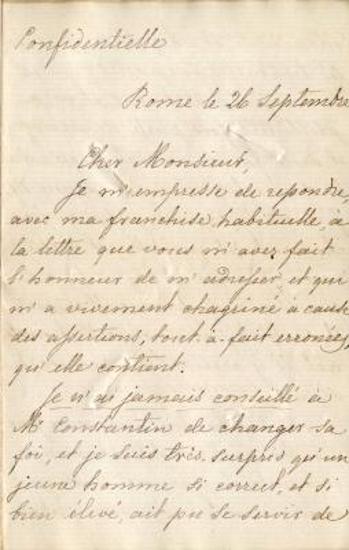 Confidentielle
Rome le 26 Septembre
Cher Monsieur,
Je m'empresse de repondre,
avec ma franchise habituelle, à
la lettre que vous m'avez fait
l'honneur de m'adresser, et qui
m'a vivement chagriné à cause
des assertions, tout-à-fait erronées,
qu'elle contient.
Je n'ai jamais conseillé à
Mr Constantin de changer sa
foi, et je suis très surpris qu'un
jeune homme si correct, et si
bien élevé, ait pu se servir de